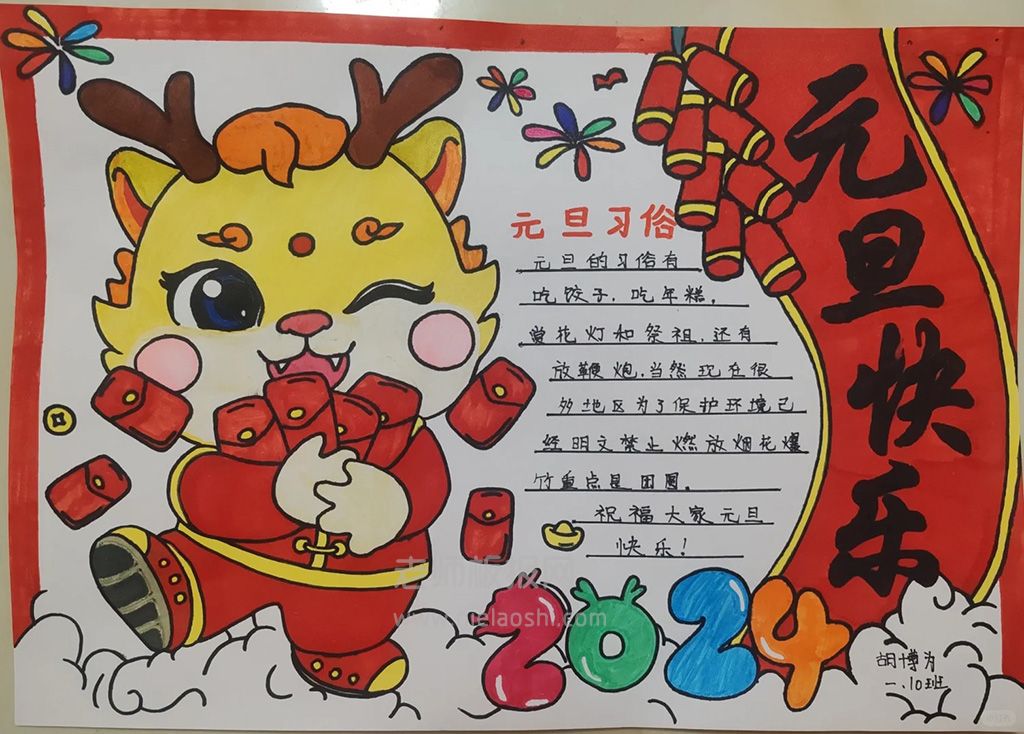 元旦快乐
元旦习俗
元旦的习俗有
吃饺子,吃年糕。
赏花灯和祭祖,还有
放鞭炮,当然现在很
多地区为了保护环境已
经明文禁止燃放烟花爆
竹重点是团圆。
祝福大家元旦
快乐!
2024
胡博为
一.10班
老师板报网
www.jielaoshi.com